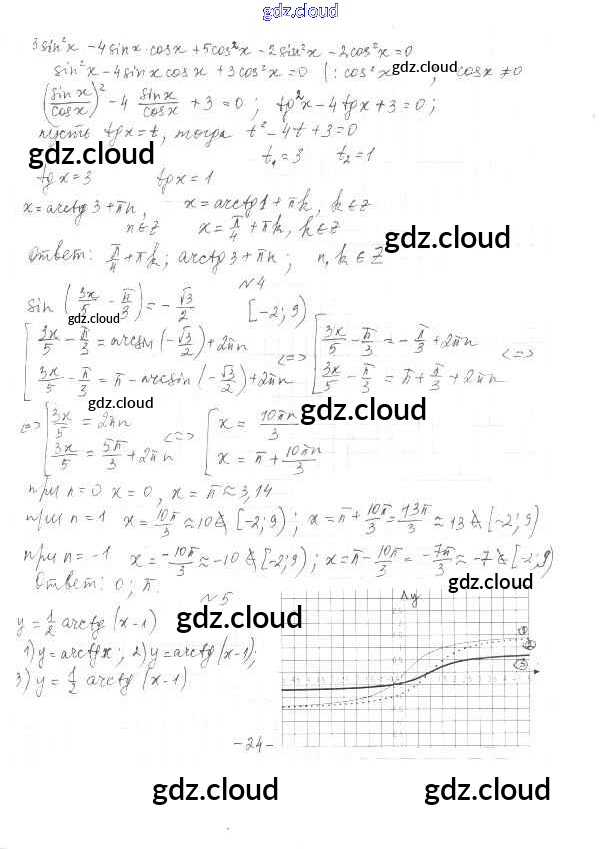 gdz.cloud
3sin²x - 4sinx·cosx + 5cos²x - 2sin²x - 2cos²x = 0
sin²x - 4sinx cosx + 3cos²x = 0 | : cos²x gdz.cloud, cosx ≠ 0
(sinx/cosx)² - 4 sinx/cosx + 3 = 0; tg²x - 4tgx + 3 = 0;
пусть tgx = t, тогда t² - 4t + 3 = 0
gdz.cloud t₁ = 3 t₂ = 1
tgx = 3 tgx = 1
x = arctg3 + πn, n ∈ Z x = arctg1 + πk, k ∈ Z
x = π/4 + πk, k ∈ Z
gdz.cloud
Ответ: π/4 + πk; arctg3 + πn; n, k ∈ Z
№4
sin(3x/5 - π/3) = -√3/2 [-2; 9)
gdz.cloud
[3x/5 - π/3 = arcsin(-√3/2) + 2πn <=> [3x/5 - π/3 = -π/3 + 2πn <=>
[3x/5 - π/3 = π - arcsin(-√3/2) + 2πn [3x/5 - π/3 = π + π/3 + 2πn
gdz.cloud gdz.cloud
<=> [3x/5 = 2πn <=> [x = 10πn/3
[3x/5 = 5π/3 + 2πn [x = π + 10πn/3
при n = 0 x = 0, x = π ≈ 3,14
при n = 1 x = 10π/3 ≈ 10 ∉ [-2; 9); x = π + 10π/3 = 13π/3 ≈ 13 ∉ [-2; 9)
при n = -1 x = -10π/3 ≈ -10 ∉ [-2; 9); x = π - 10π/3 = -7π/3 ≈ -7 ∉ [-2; 9)
Ответ: 0; π. gdz.cloud
№5
gdz.cloud
y = 1/2 arctg(x-1)
1) y = arctgx; 2) y = arctg(x-1);
3) y = 1/2 arctg(x-1)
y
①
②
③
-24-
gdz.cloud gdz.cloud